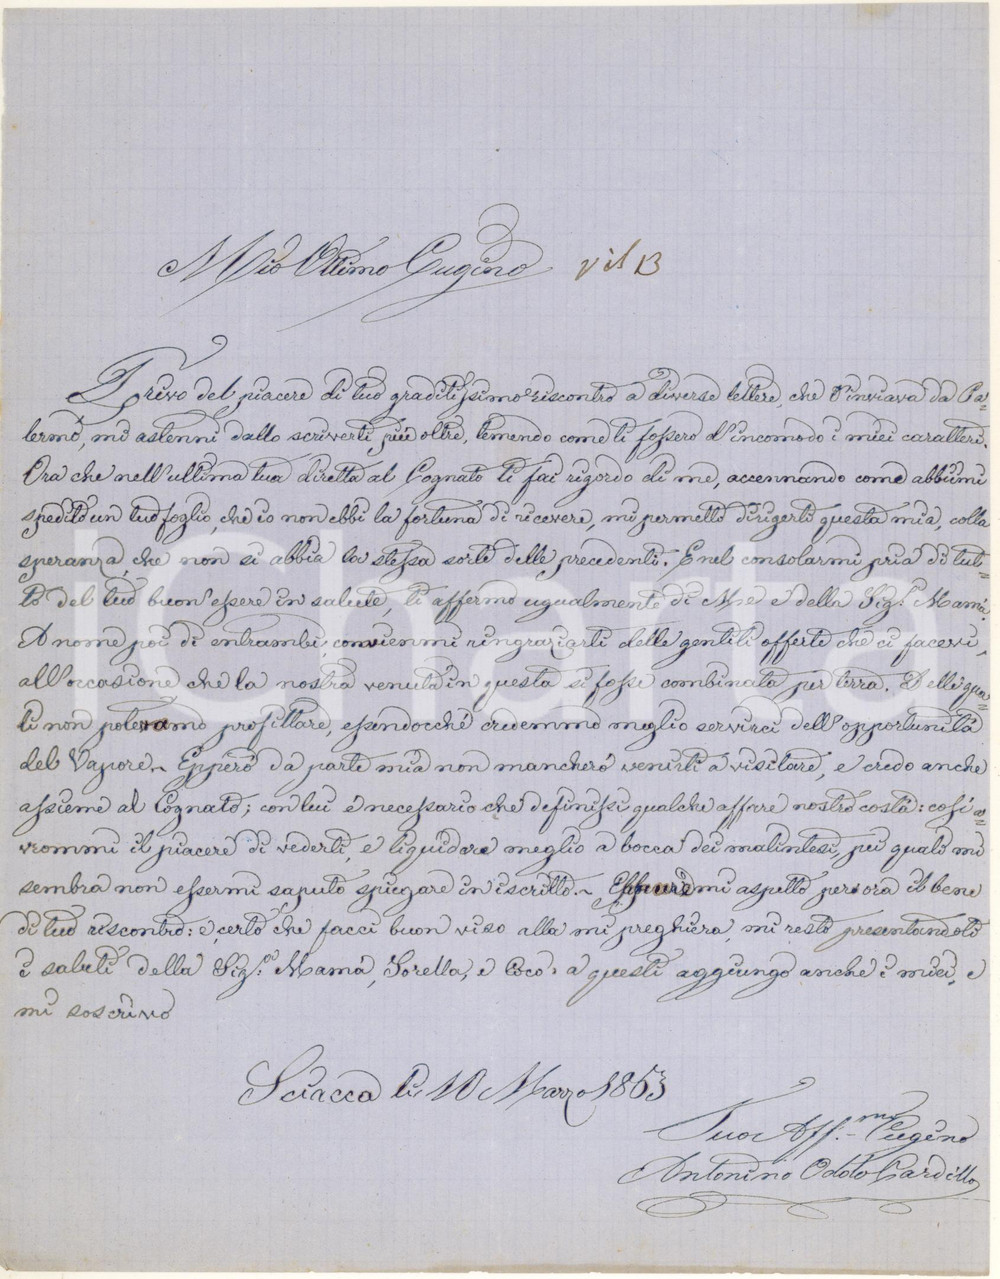 Mio Ottimo Cugino
Privo del piacere di tuo graditissimo riscontro a diverse lettere, che t'inviava da Pa=
lermo, mi astenni dallo scriverti piú oltre, temendo come ti fossero d'incomodo i miei caratteri.
Ora che nell'ultima tua diretta al Cognato ti fai rigordo di me, accennando come abbiimi
spedito un tuo foglio, che io non ebbi la fortuna di ricevere, mi permetto dirigerti questa mia, colla
speranza, che non si abbia la stessa sorte delle precedenti. E nel consolarmi pria di tut=
to del tuo buon'essere in salute, ti affermo ugualmente di Me e della Sig.ª Mamá.
A nome poi di entrambi, convienmi ringraziarti delle gentili offerte che ci facevi,
all'occasione che la nostra venuta in questa si fosse combinata per terra. Delle qua=
li non potevamo profittare, essendocché credemmo meglio servirci dell'opportunitá
del Vapore. Eppero da parte mia non mancheró venirti a visitare, e credo anche
assieme al Cognato; con lui é necessario che definissi qualche affare nostro costá: cosí a=
vrommi il piacere di vederti, e liquidare meglio a bocca dei malintesi, pei quali mi
sembra non essermi saputo spiegare in iscritto. mi aspetto per ora il bene
di tuo riscontro: e, certo che facci buon viso alla mi preghiera, mi resto presentandoti
i saluti della Sig.ª Mamá, Sorella, e Cocó: a questi aggiungo anche i miei, e
mi soscrivo
Sciacca li 10 Marzo 1863
Tuo Aff.mo Cugino
Antonino Oddo Cardillo
iCharta